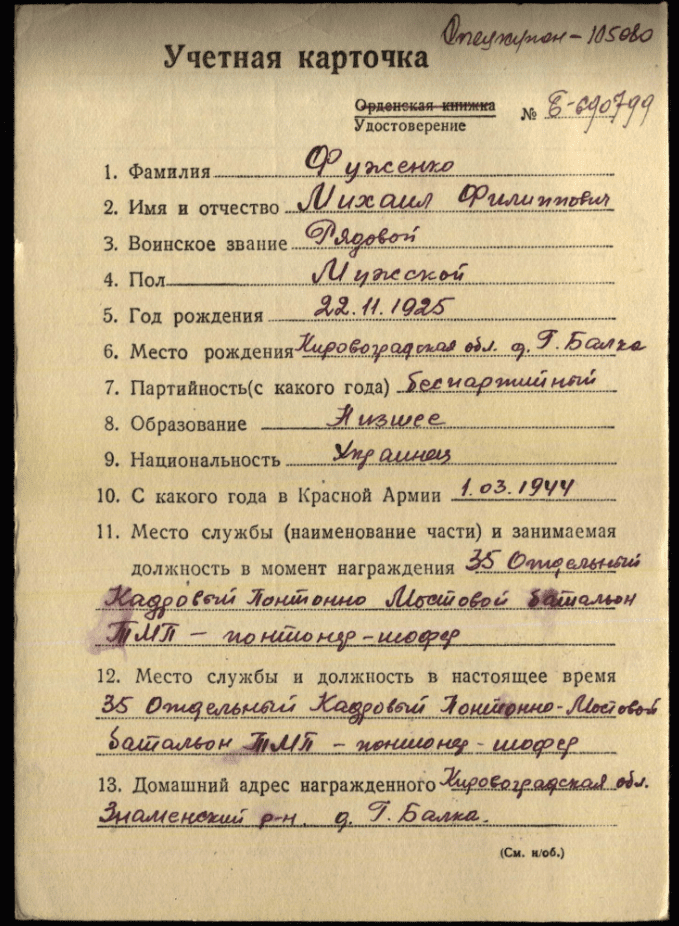 Отецкупон - 105080
Учетная карточка
Орденская книжка
Удостоверение
№ Б-690799
1. Фамилия Фуженко
2. Имя и отчество Михаил Филиппович
3. Воинское звание Рядовой
4. Пол Мужской
5. Год рождения 22.11.1925
6. Место рождения Кировоградская обл. д. Г. Балка
7. Партийность(с какого года) беспартийный
8. Образование Низшее
9. Национальность Украинец
10. С какого года в Красной Армии 1.03.1944
11. Место службы (наименование части) и занимаемая
должность в момент награждения 35 Отдельный
Кадровый Понтонно Мостовой батальон
ТМП - понтонер-шофер
12. Место службы и должность в настоящее время
35 Отдельный Кадровый Понтонно-Мостовой
батальон ТМП - понтонер - шофер
13. Домашний адрес награжденного Кировоградская обл.
Знаменский р-н. д. Г. Балка.
(См. н/об.)